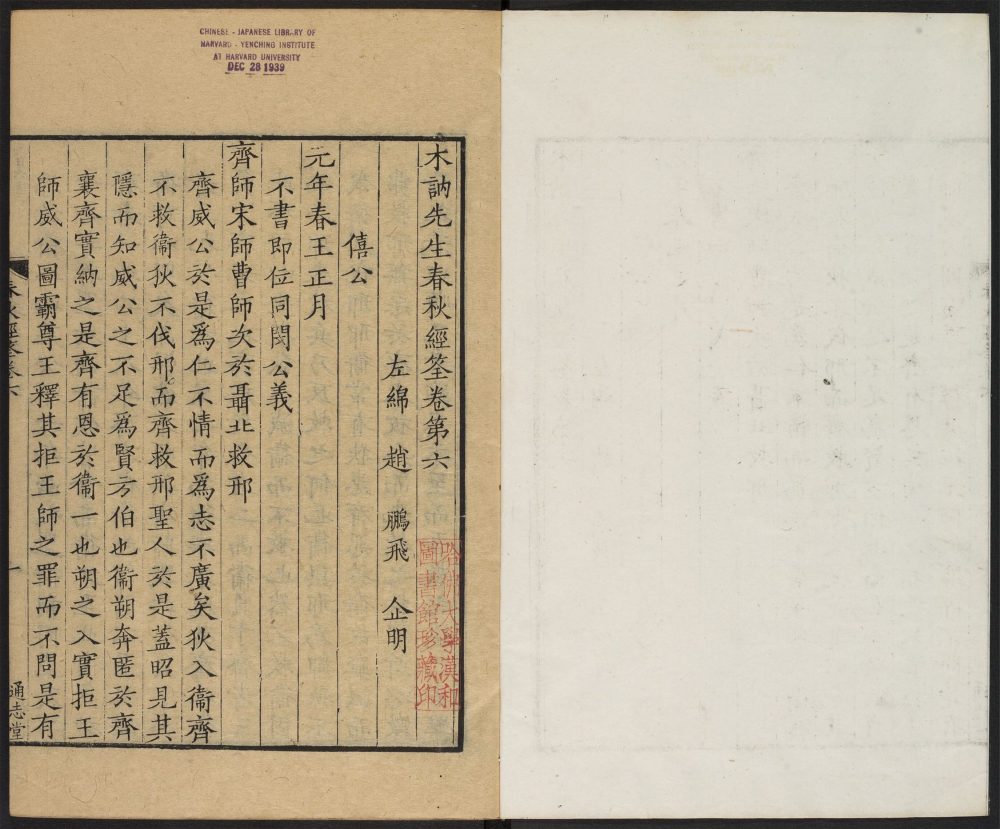 CHINESE - JAPANESE LIBRARY OF
HARVARD - YENCHING INSTITUTE
AT HARVARD UNIVERSITY
DEC 28 1939
木訥先生春秋經筌卷第六
左綿 趙 鵬飛 企明
僖公
元年春王正月
不書即位同閔公義
齊師宋師曹師次於聶北救邢
齊威公於是爲仁不情而爲志不廣矣狄入衞齊
不救衞狄不伐邢而齊救邢聖人於是蓋昭見其
隱而知威公之不足爲賢方伯也衞朔奔匿於齊
襄齊實納之是齊有恩於衞一也朔之入實拒王
師威公圖霸尊王釋其拒王師之罪而不問是有
春秋經筌卷六
一
通志堂
哈佛大學漢和
圖書館珍藏印